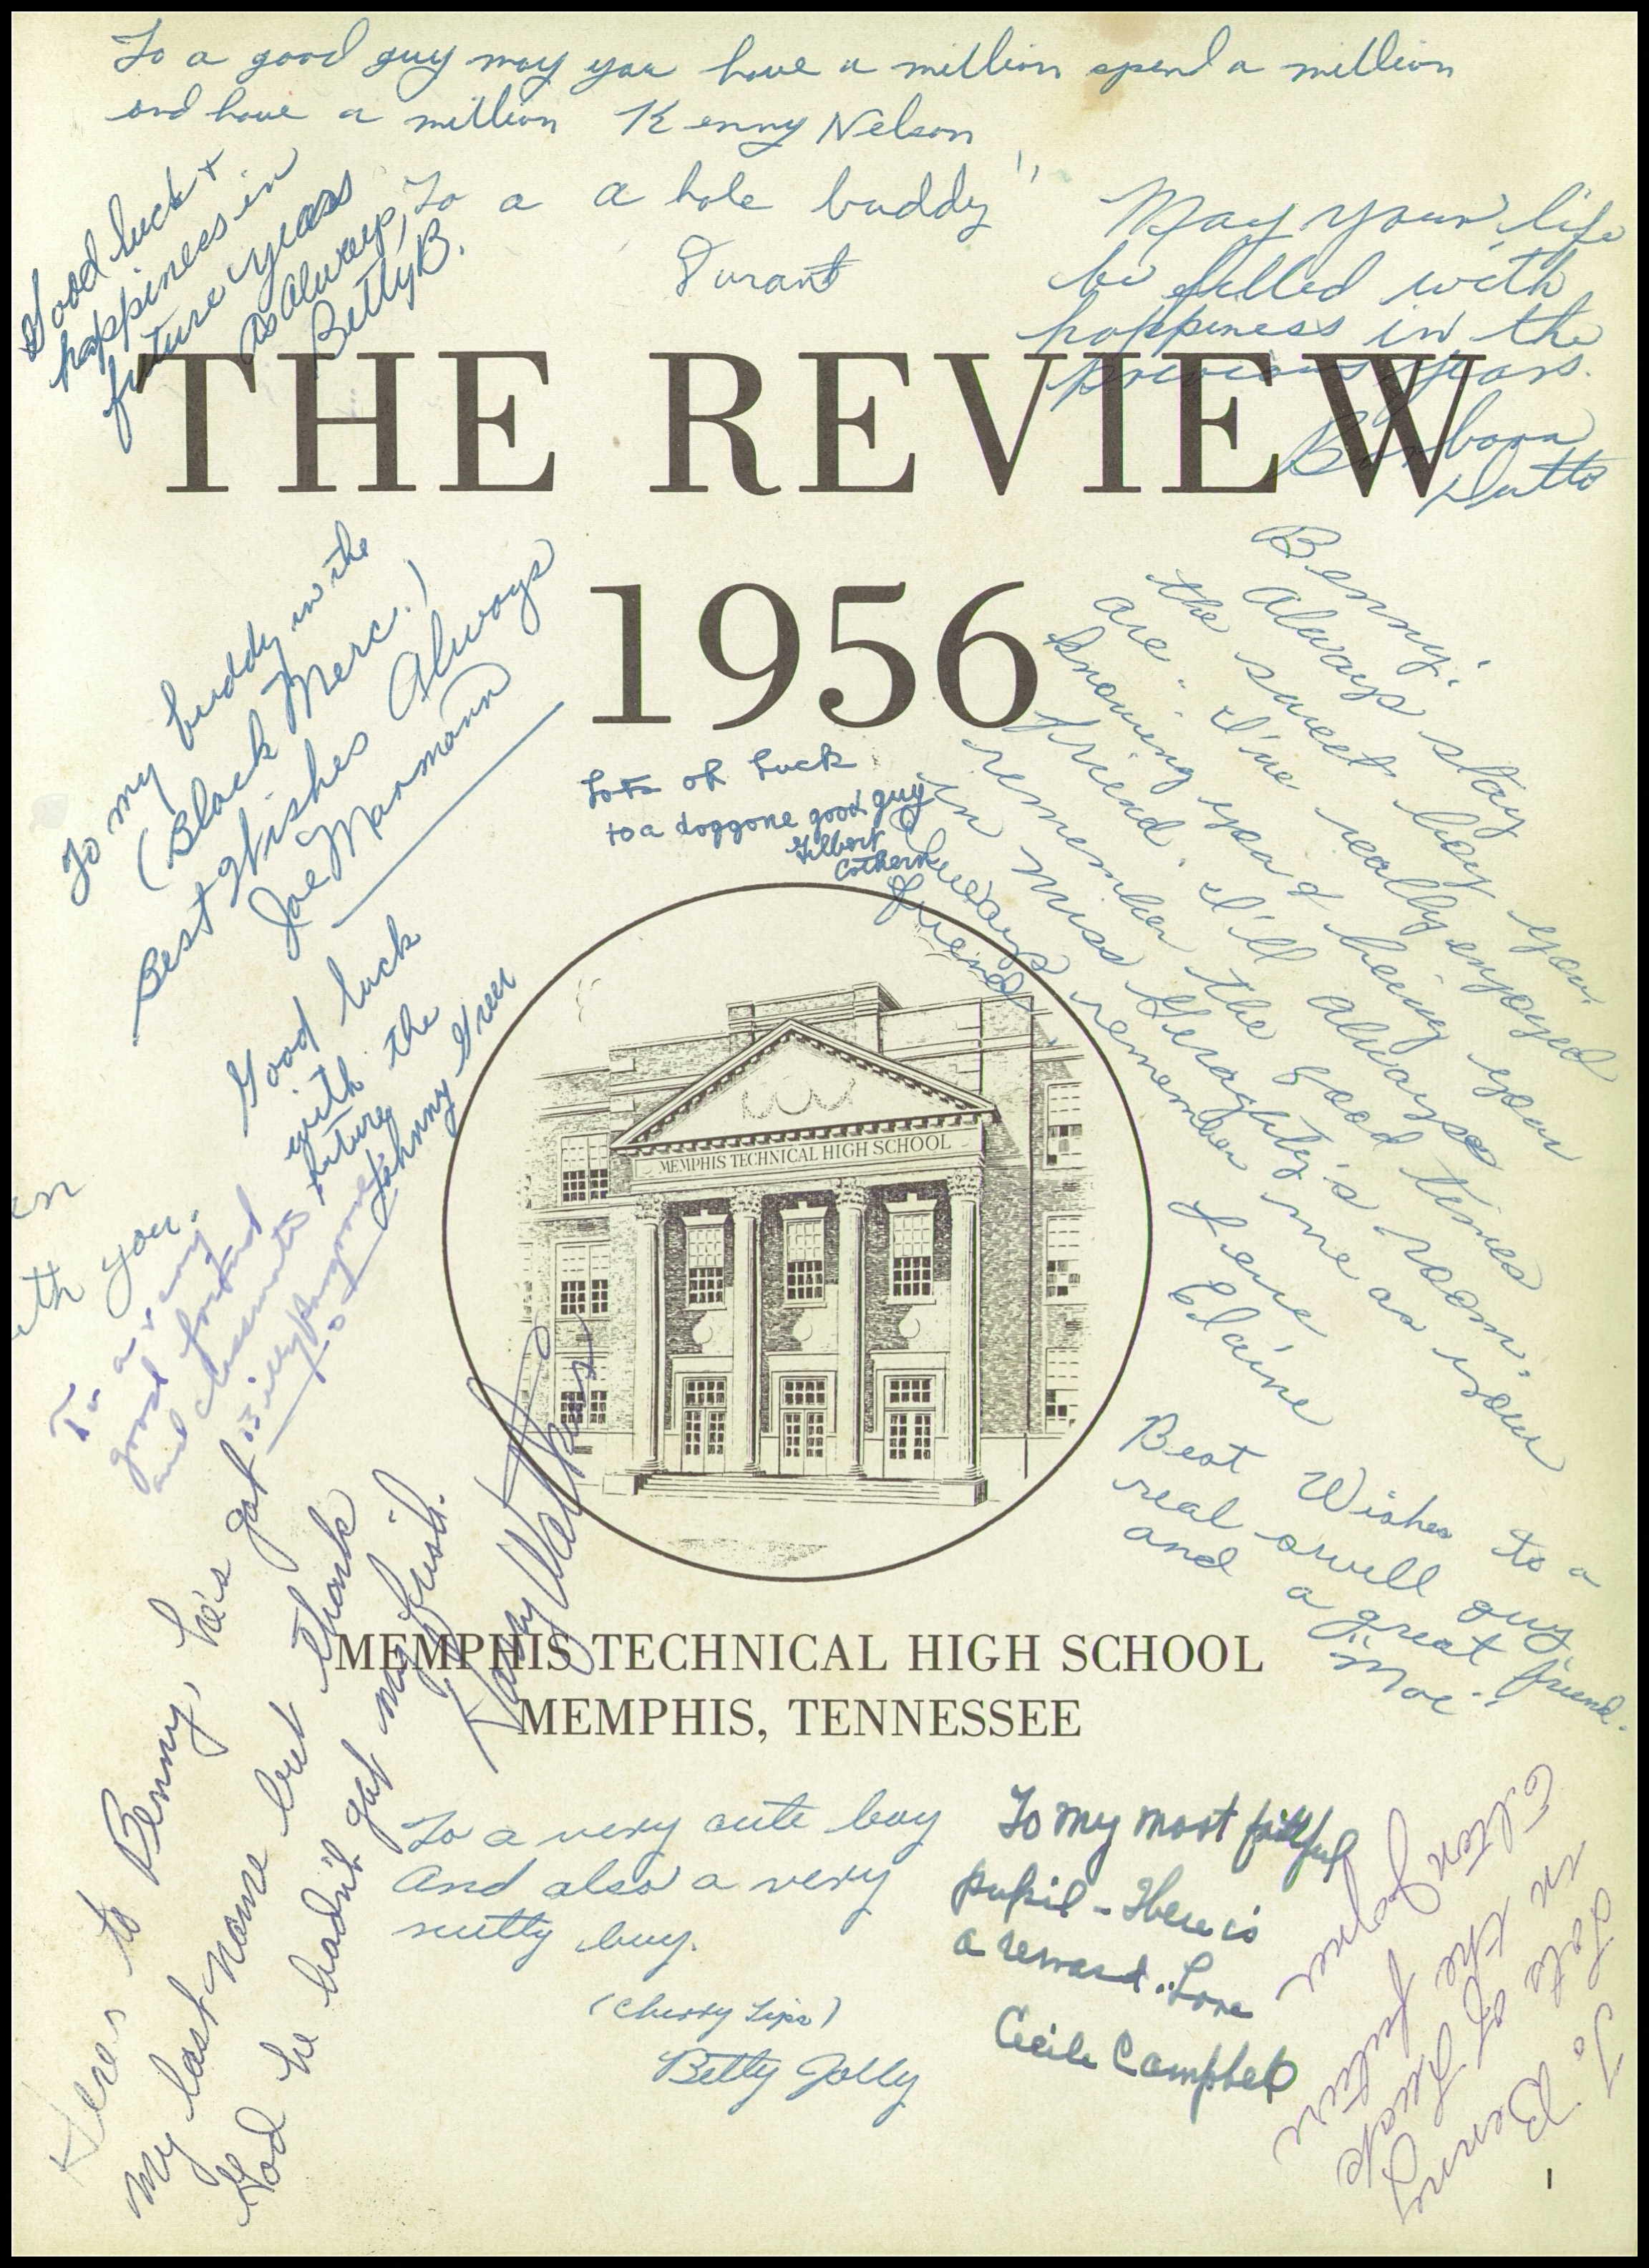 To a good guy may you have a million spend a million
and have a million Kenny Nelson
To a a hole buddy"
Durant
Good luck +
happiness in
future years
As Always,
Betty B.
May your life
be filled with
happiness in the
precious years.
Barbara
THE REVIEW
1956
To my buddy in the
(Black Merc.)
Best Wishes Always
Joe Marmann
Lots of Luck
to a doggone good guy
Gilbert
Cothern
Benny:
Always stay
the sweet boy you
are. I've really enjoyed
knowing you & being your
friend. I'll always
remember the good times
in Miss Geraghty's room.
Always remember me as your
friend
Love
Elaine
Good luck
with the
future
Johnny Greer
en
ith you.
To a
good
and classmate
MEMPHIS TECHNICAL HIGH SCHOOL
Best Wishes to a
real swell guy
and a great friend.
"Moe"
Heres to Benny, he's got
my last name but thank
God he hadn't got my finish.
Harry Watkins
MEMPHIS TECHNICAL HIGH SCHOOL
MEMPHIS, TENNESSEE
To a very cute boy
And also a very
nutty boy.
(Cherry Lips)
Betty Jolly
To my most faithful
pupil - There is
a reward. Love
Cecile Campbell
To Benny
Lots of Luck
in the future
Elten
1